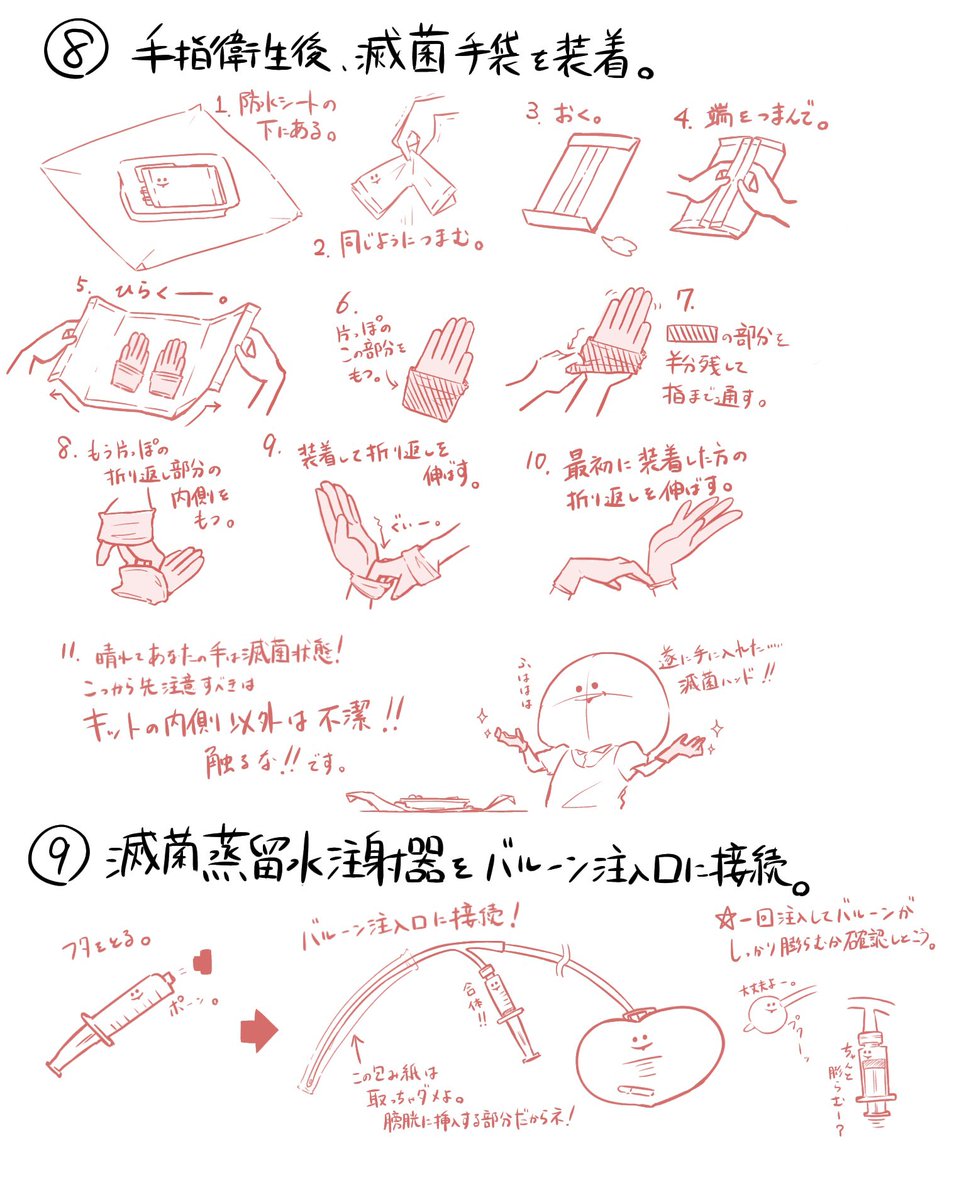 ⑧ 手指衛生後、滅菌手袋を装着。
1. 防水シートの
下にある。
2. 同じようにつまむ。
3. おく。
4. 端をつまんで。
5. ひらくー。
6.
片っぽの
この部分を
もつ。
7.
の部分を
半分残して
指まで通す。
8. もう片っぽの
折り返し部分の
内側を
もつ。
9. 装着して折り返しを
伸ばす。
ぐぃー。
10. 最初に装着した方の
折り返しを伸ばす。
11. 晴れてあなたの手は滅菌状態!
こっから先注意すべきは
キットの内側以外は不潔!!
触るな!!です。
ふははは
遂に手に入れた……
滅菌ハンド!!
⑨ 滅菌蒸留水注射器をバルーン注入口に接続。
フタをとる。
ポーン。
バルーン注入口に接続!
合体!!
この包み紙は
取っちゃダメよ。
膀胱に挿入する部分だからネ!
☆一回注入してバルーンが
しっかり膨らむか確認しとこう。
大丈夫よー。
プクーッ
ちゃんと
膨らむー?